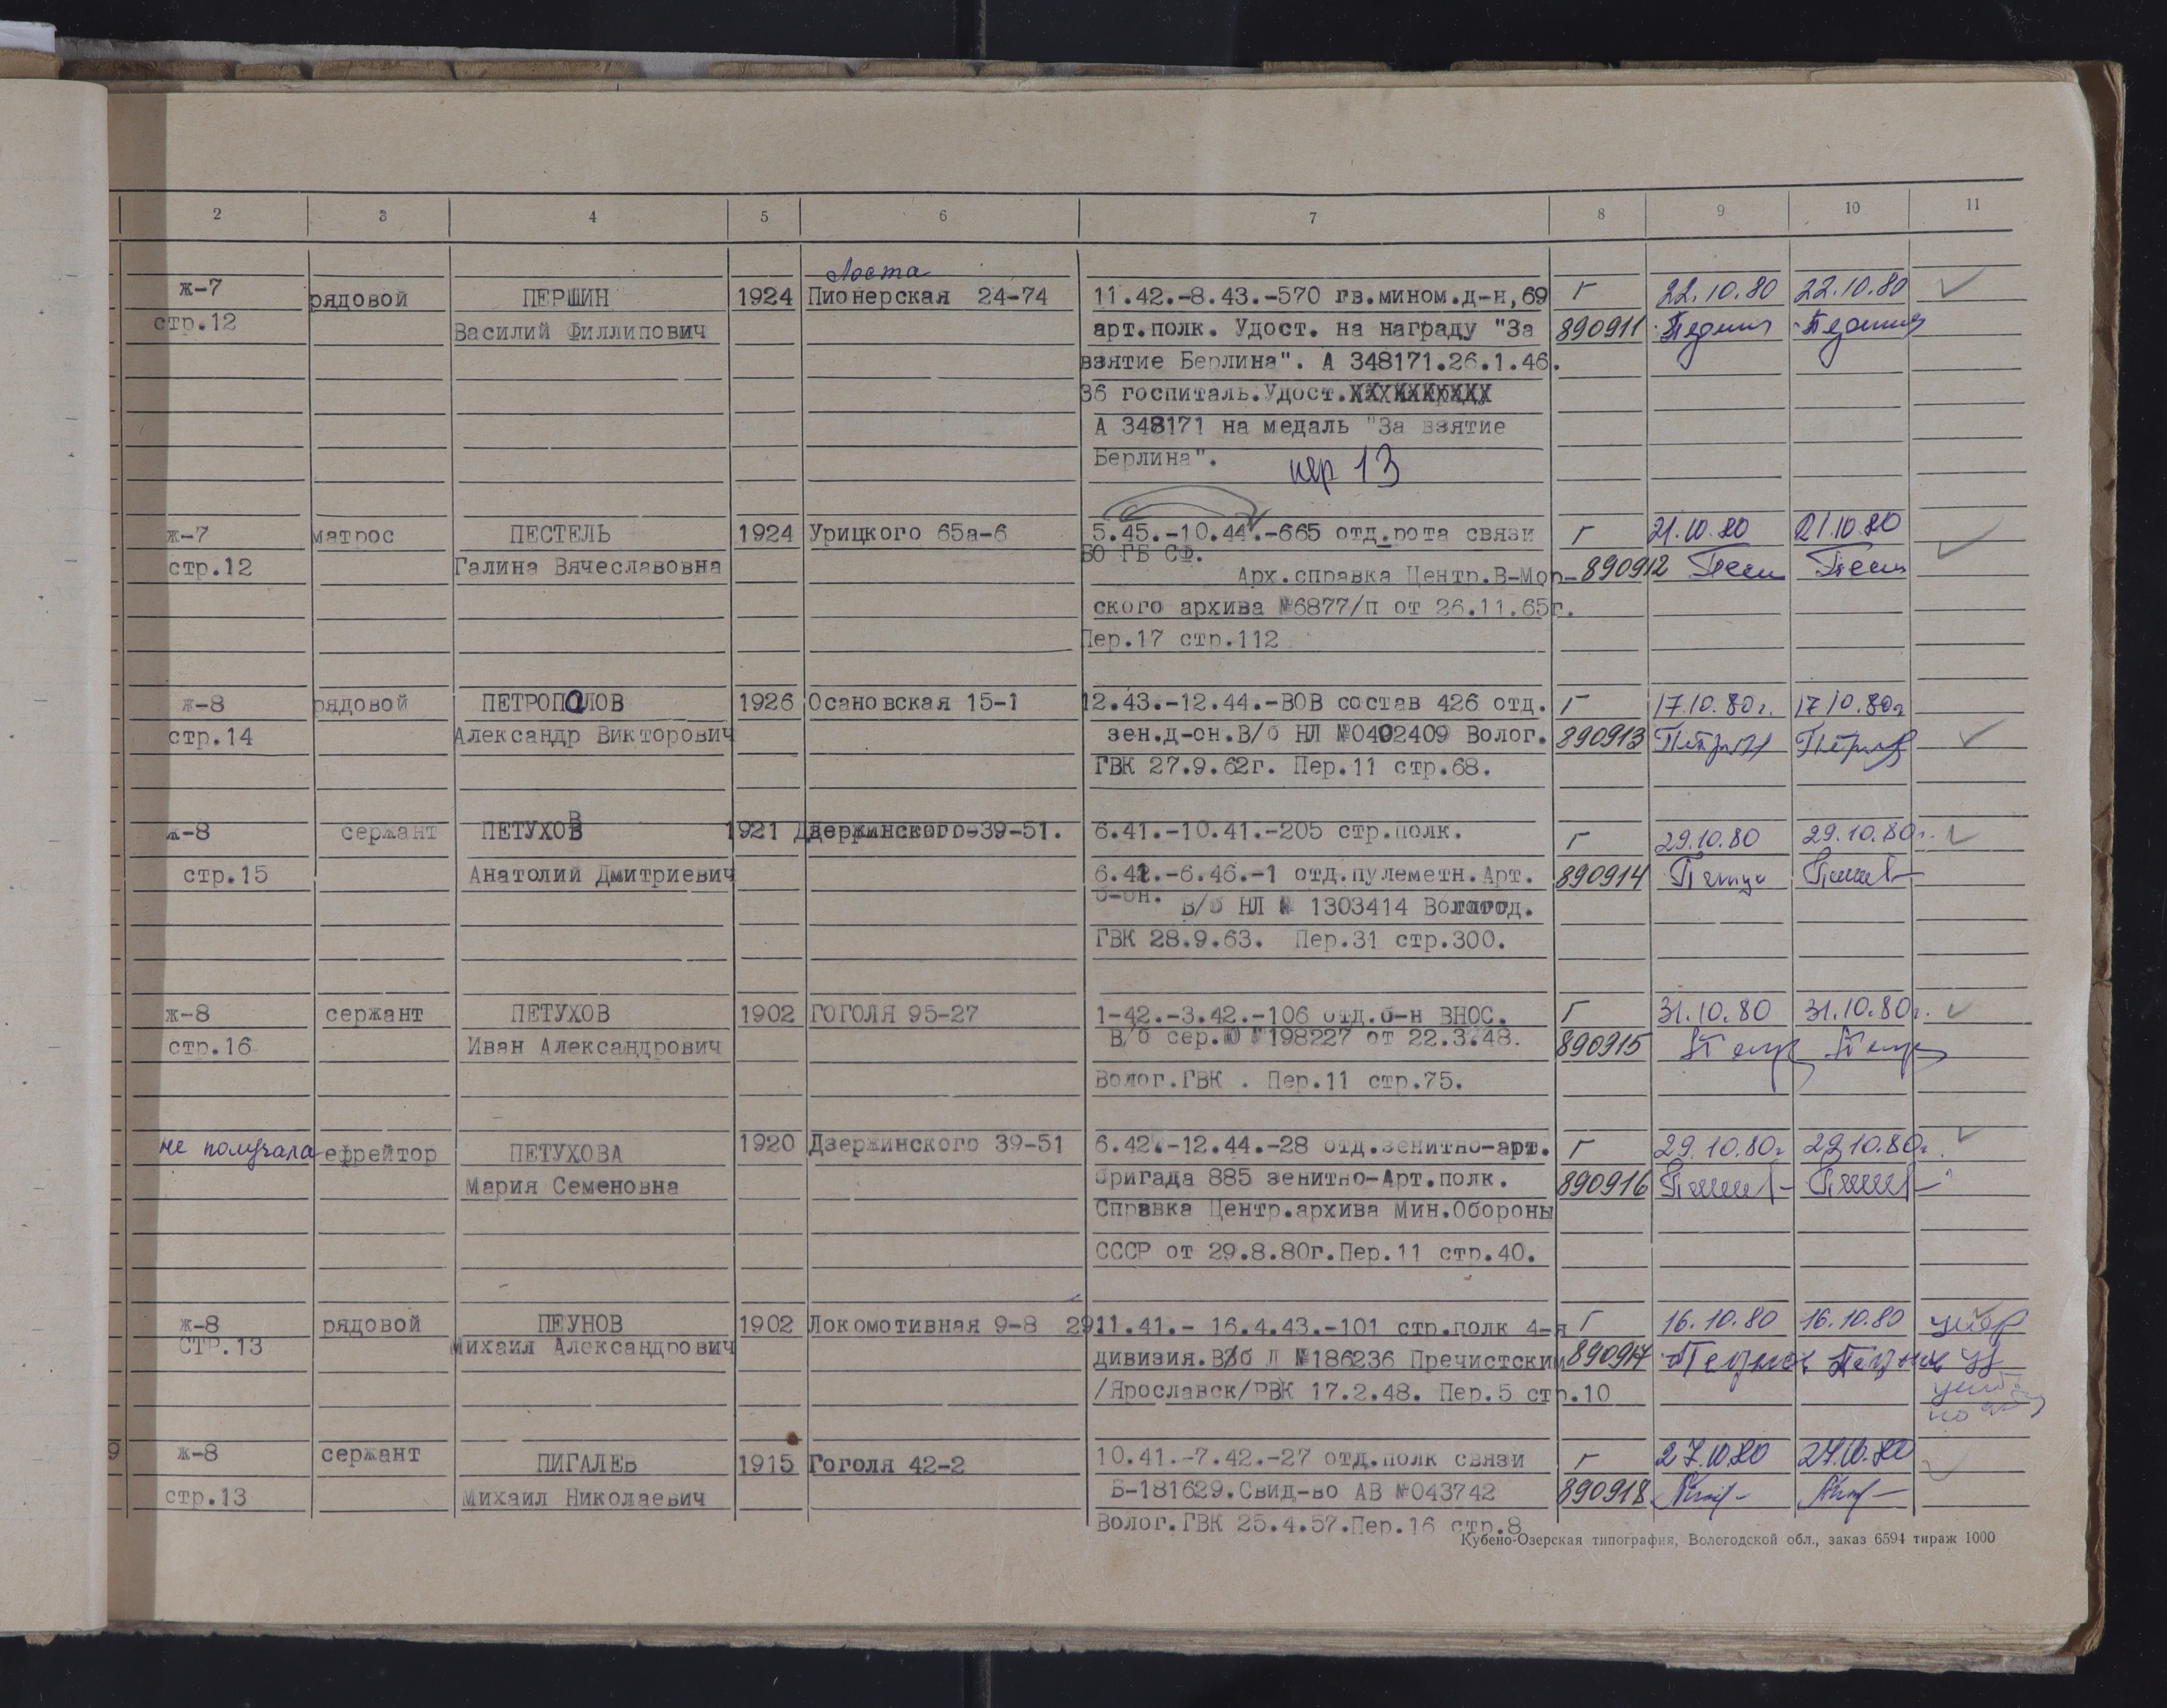 2 3 4 5 6 7 8 9 10 11
Лоста
ж-7 рядовой ПЕРШИН 1924 Пионерская 24-74 11.42.-8.43.-570 гв.мином.д-н,69 Г 22.10.80 22.10.80
стр.12 Василий Филлипович арт.полк. Удост. на награду "За 890911
взятие Берлина". А 348171.26.1.46.
36 госпиталь.Удост.
А 348171 на медаль "За взятие
Берлина". пер 13
ж-7 матрос ПЕСТЕЛЬ 1924 Урицкого 65а-6 5.45.-10.44.-665 отд.рота связи Г 21.10.80 21.10.80
ВО ГБ СФ.
стр.12 Галина Вячеславовна Арх.справка Центр.В-Мор- 890912 Пест Пест
ского архива №6877/п от 26.11.65г.
Пер.17 стр.112
ж-8 рядовой ПЕТРОПаЛОВ 1926 Осановская 15-1 12.43.-12.44.-ВОВ состав 426 отд. Г 17.10.80г. 17.10.80г
стр.14 Александр Викторович зен.д-он.В/б НЛ №0402409 Волог. 890913
ГВК 27.9.62г. Пер.11 стр.68.
ж-8 сержант ПЕТУХОВ 1921 Дзержинского-39-51. 6.41.-10.41.-205 стр.полк. Г 29.10.80 29.10.80г.
стр.15 Анатолий Дмитриевич 6.42.-6.46.-1 отд.пулеметн.Арт. 890914
б-он. В/б НЛ № 1303414 Вологод.
ГВК 28.9.63. Пер.31 стр.300.
ж-8 сержант ПЕТУХОВ 1902 ГОГОЛЯ 95-27 1-42.-3.42.-106 отд.б-н ВНОС. Г 31.10.80 31.10.80г.
стр.16 Иван Александрович В/б сер.Ю №198227 от 22.3.48. 890915
Волог.ГВК . Пер.11 стр.75.
не получала ефрейтор ПЕТУХОВА 1920 Дзержинского 39-51 6.42.-12.44.-28 отд.зенитно-арт. Г 29.10.80г 29.10.80г.
Мария Семеновна бригада 885 зенитно-Арт.полк. 890916
Справка Центр.архива Мин.Обороны
СССР от 29.8.80г.Пер.11 стр.40.
ж-8 рядовой ПЕУНОВ 1902 Локомотивная 9-8 2911.41.- 16.4.43.-101 стр.полк 4-я Г 16.10.80 16.10.80
СТР.13 Михаил Александрович дивизия.В/б Л №186236 Пречистским 890917 Пеунов Пеунов
/Ярославск/РВК 17.2.48. Пер.5 стр.10
9 ж-8 сержант ПИГАЛЕВ 1915 Гоголя 42-2 10.41.-7.42.-27 отд.полк связи Г 27.10.80 27.10.80
стр.13 Михаил Николаевич Б-181629.Свид-во АВ №043742 890918
Волог.ГВК 25.4.57.Пер.16 стр.8
Кубено-Озерская типография, Вологодской обл., заказ 6594 тираж 1000